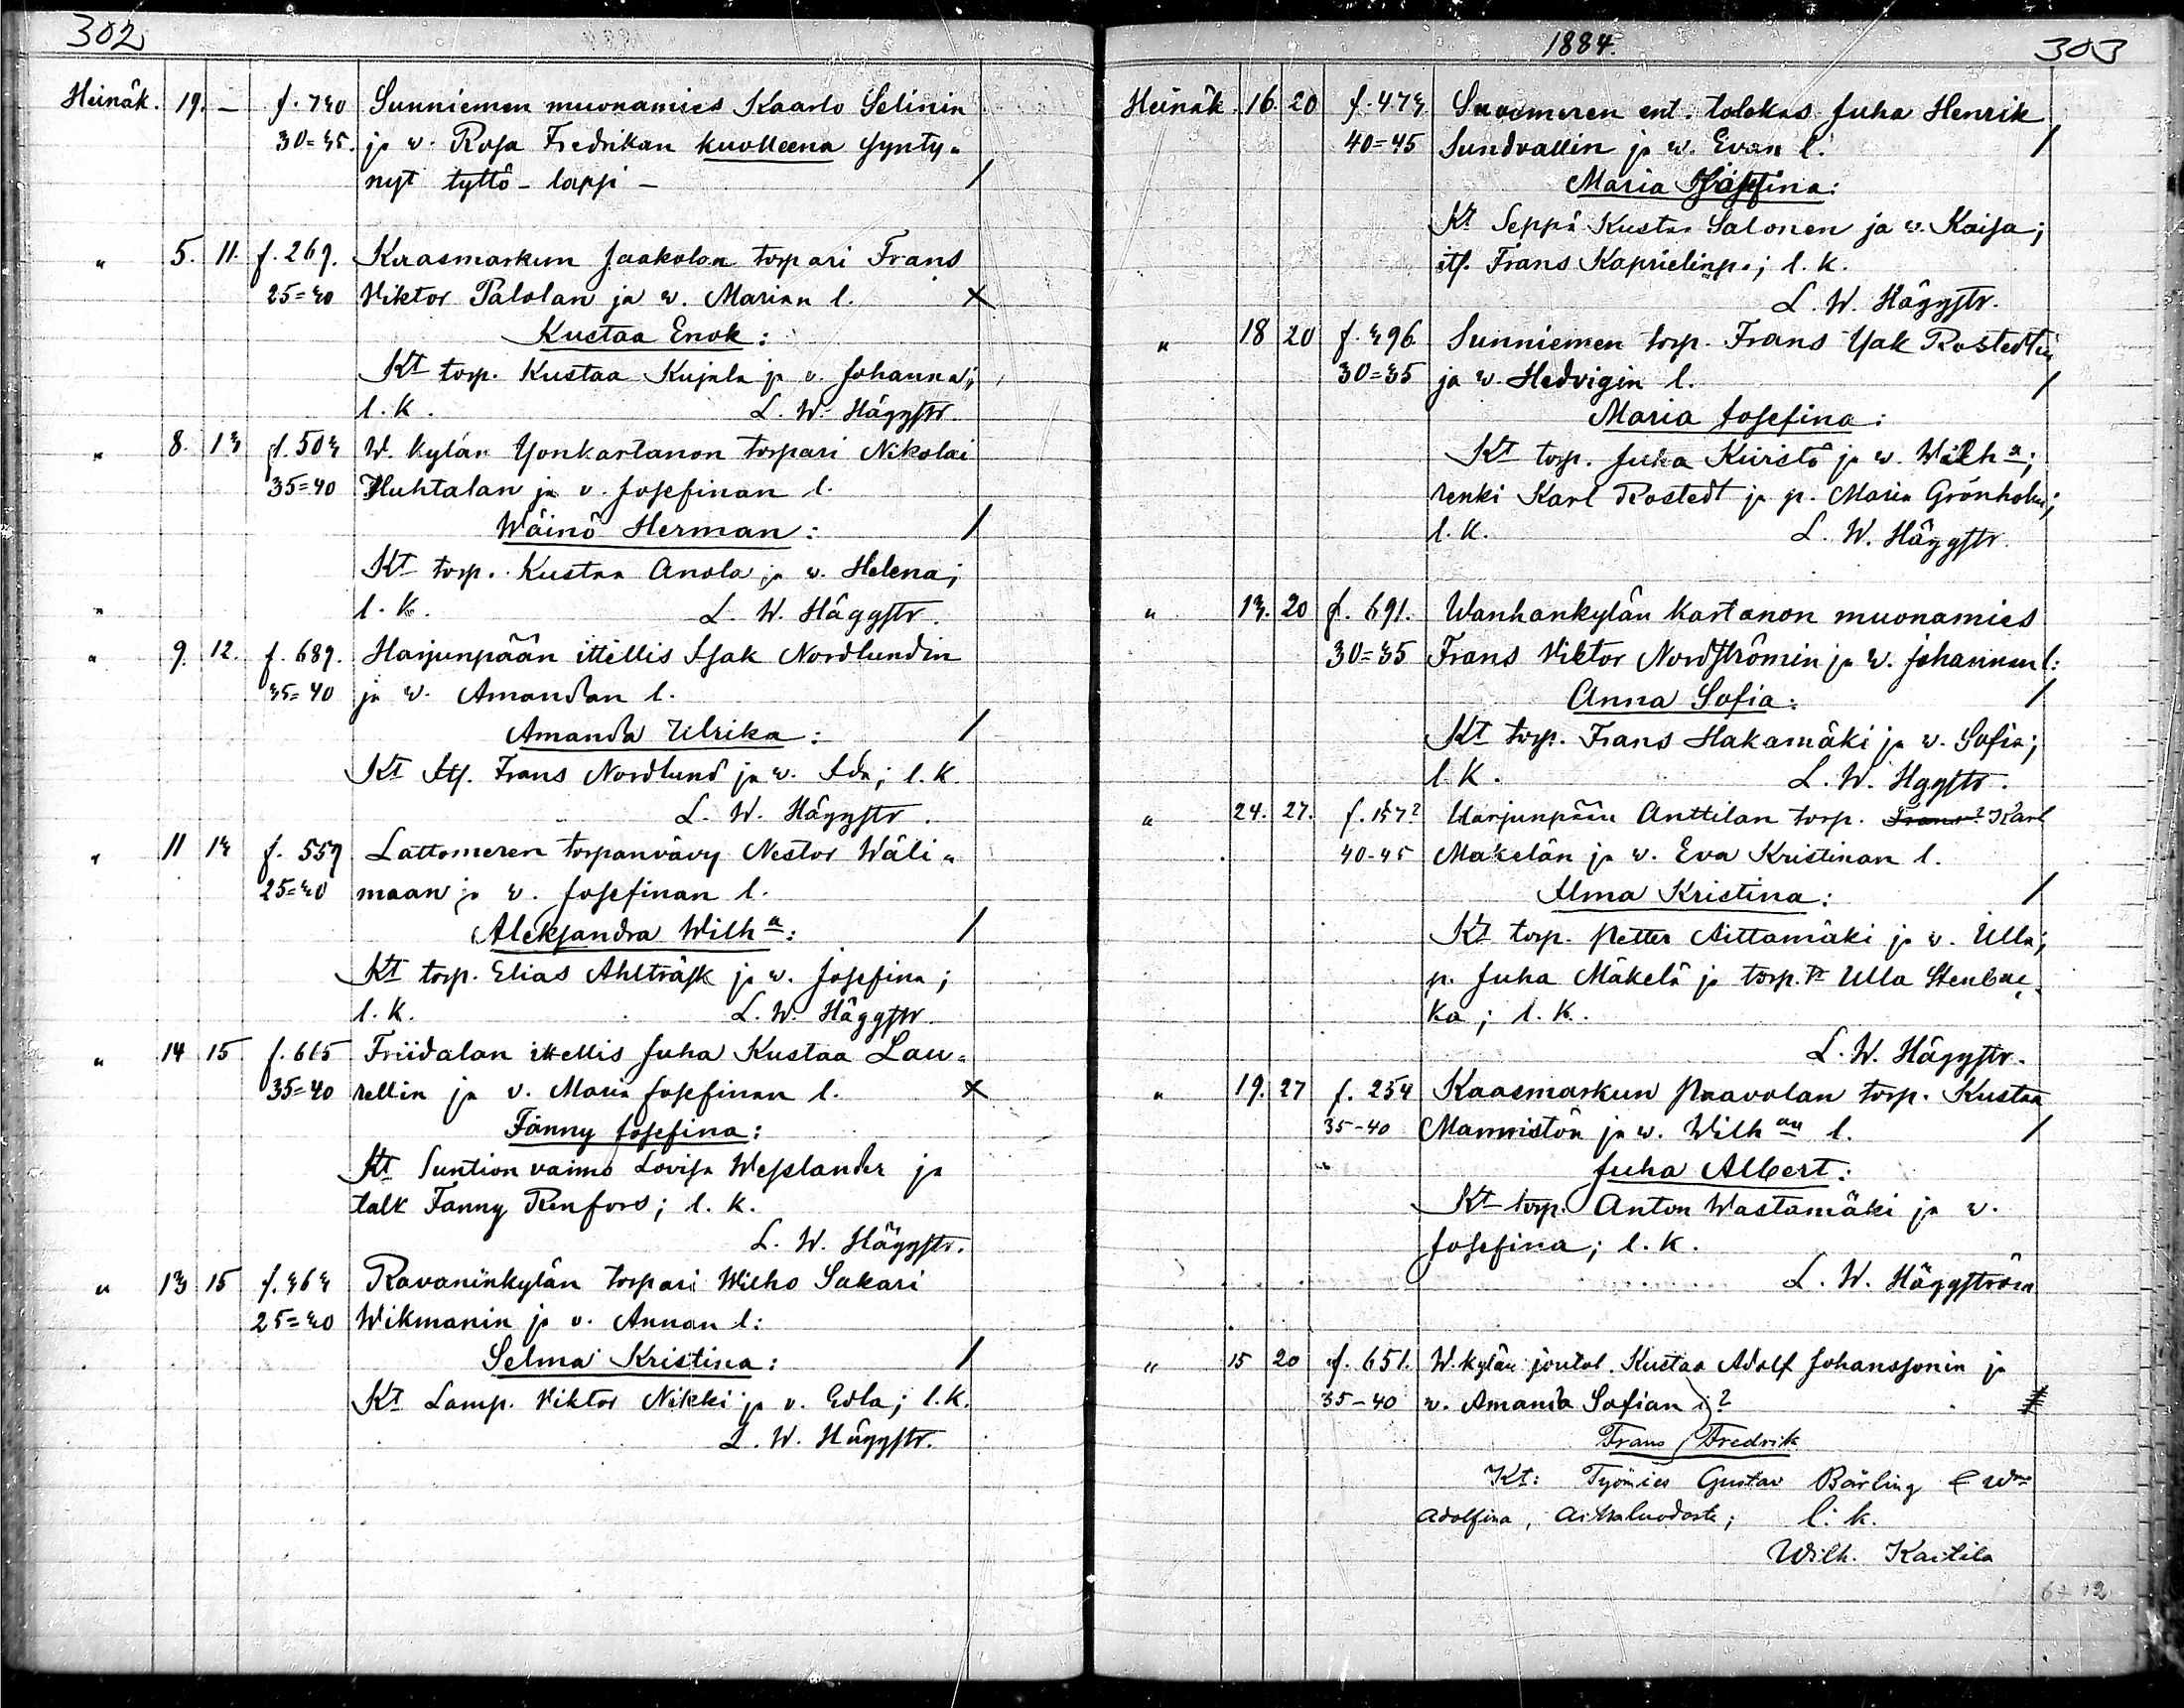 302
Heinäk. 19. – f. 740 Sunniemen muonamies Kaarlo Selinin
30=35. ja w. Rosa Fredrikan kuolleena synty„
nyt tyttö-lapsi – /
„ 5. 11. f. 269. Kaasmarkun Jaakolan torpari Frans
25=30 Viktor Palolan ja w. Marian l. X
Kustaa Enok:
Kt torp. Kustaa Kujala ja v. Johanna;
l. k. L. W. Häggstr.
„ 8. 13 f. 503 W. kylän Yonkartanon torpari Nikolai
35=40 Huhtalan ja v. Josefinan l.
Wäinö Herman: /
Kt torp. Kustaa Anola ja w. Helena;
„ l. k. L. W. Häggstr.
„ 9. 12. f. 689. Harjunpään itellis Isak Nordlundin
35=40 ja w. Amandan l.
Amanda Ulrika: /
Kt Its. Frans Nordlund ja w. Ida; l. k.
L. W. Häggstr.
„ 11 13 f. 559 Lattomeren torpanvävy Nestor Wäli„
25=30 maan ja w. Josefinan l.
Aleksandra Wilh a: /
Kt torp. Elias Ahlträsk ja w. Josefina;
l. k. L. W. Häggstr.
„ 14 15 f. 615 Friidalan itellis Juha Kustaa Lau„
35=40 rellin ja v. Maria Josefinan l. X
Fanny Josefina:
Kt Suntion vaimo Lovisa Wesslander ja
talk Fanny Renfors; l. k.
L. W. Häggstr.
„ 13 15 f. 363 Ravaninkylän torpari Wilho Sakari
25=30 Wikmanin ja v. Annan l:
Selma Kristina: /
Kt Lamp. Viktor Nikki ja v. Edla; l. k.
L. W. Häggstr.
1884. 303
Heinäk. 16. 20 f. 473 Suosmeren ent. talokas Juha Henrik
40=45 Sundvallin ja w. Evan l. /
Maria Josefina:
Kt Seppä Kustaa Salonen ja w. Kaisa;
its. Frans Kaprielinp.; l. k.
L. W. Häggstr.
„ 18 20 f. 396 Sunniemen torp. Frans Isak Rostedtin
30=35 ja w. Hedvigin l. /
Maria Josefina:
Kt torp. Juha Kiirstö ja w. Wilh a;
renki Karl Rostedt ja p. Maria Grönholm;
l. k. L. W. Häggstr.
„ 13. 20 f. 691. Wanhankylän kartanon muonamies
30=35 Frans Viktor Nordströmin ja w. Johannan l:
Anna Sofia: /
Kt torp. Frans Hakamäki ja w. Sofia;
l. k. L. W. Hggstr.
„ 24. 27. f. 157? Harjunpään Anttilan torp. Frans? Karl
40-45 Mäkelän ja w. Eva Kristinan l.
Ilma Kristina: /
Kt torp. Petter Aittamäki ja w. Ulla;
p. Juha Mäkelä ja torp. tr Ulla Stenbac„
ka; l. k.
L. W. Häggstr.
„ 19. 27 f. 254 Kaasmarkun Paavolan torp. Kustaa
35-40 Manniston ja w. Wilh an l. /
Juha Albert:
Kt torp. Anton Wastamäki ja w.
Josefina; l. k.
L. W. Häggström
„ 15 20 f. 651. W. kylän joutol. Kustaa Adolf Johanssonin ja
35-40 w. Amanda Sofian l.?
Frans Fredrik
Kt: Työmies Gustav Bärling & Wmo
Adolfina, Aittaluodosta; l. k.
Wilh. Kaitila
6 + 12